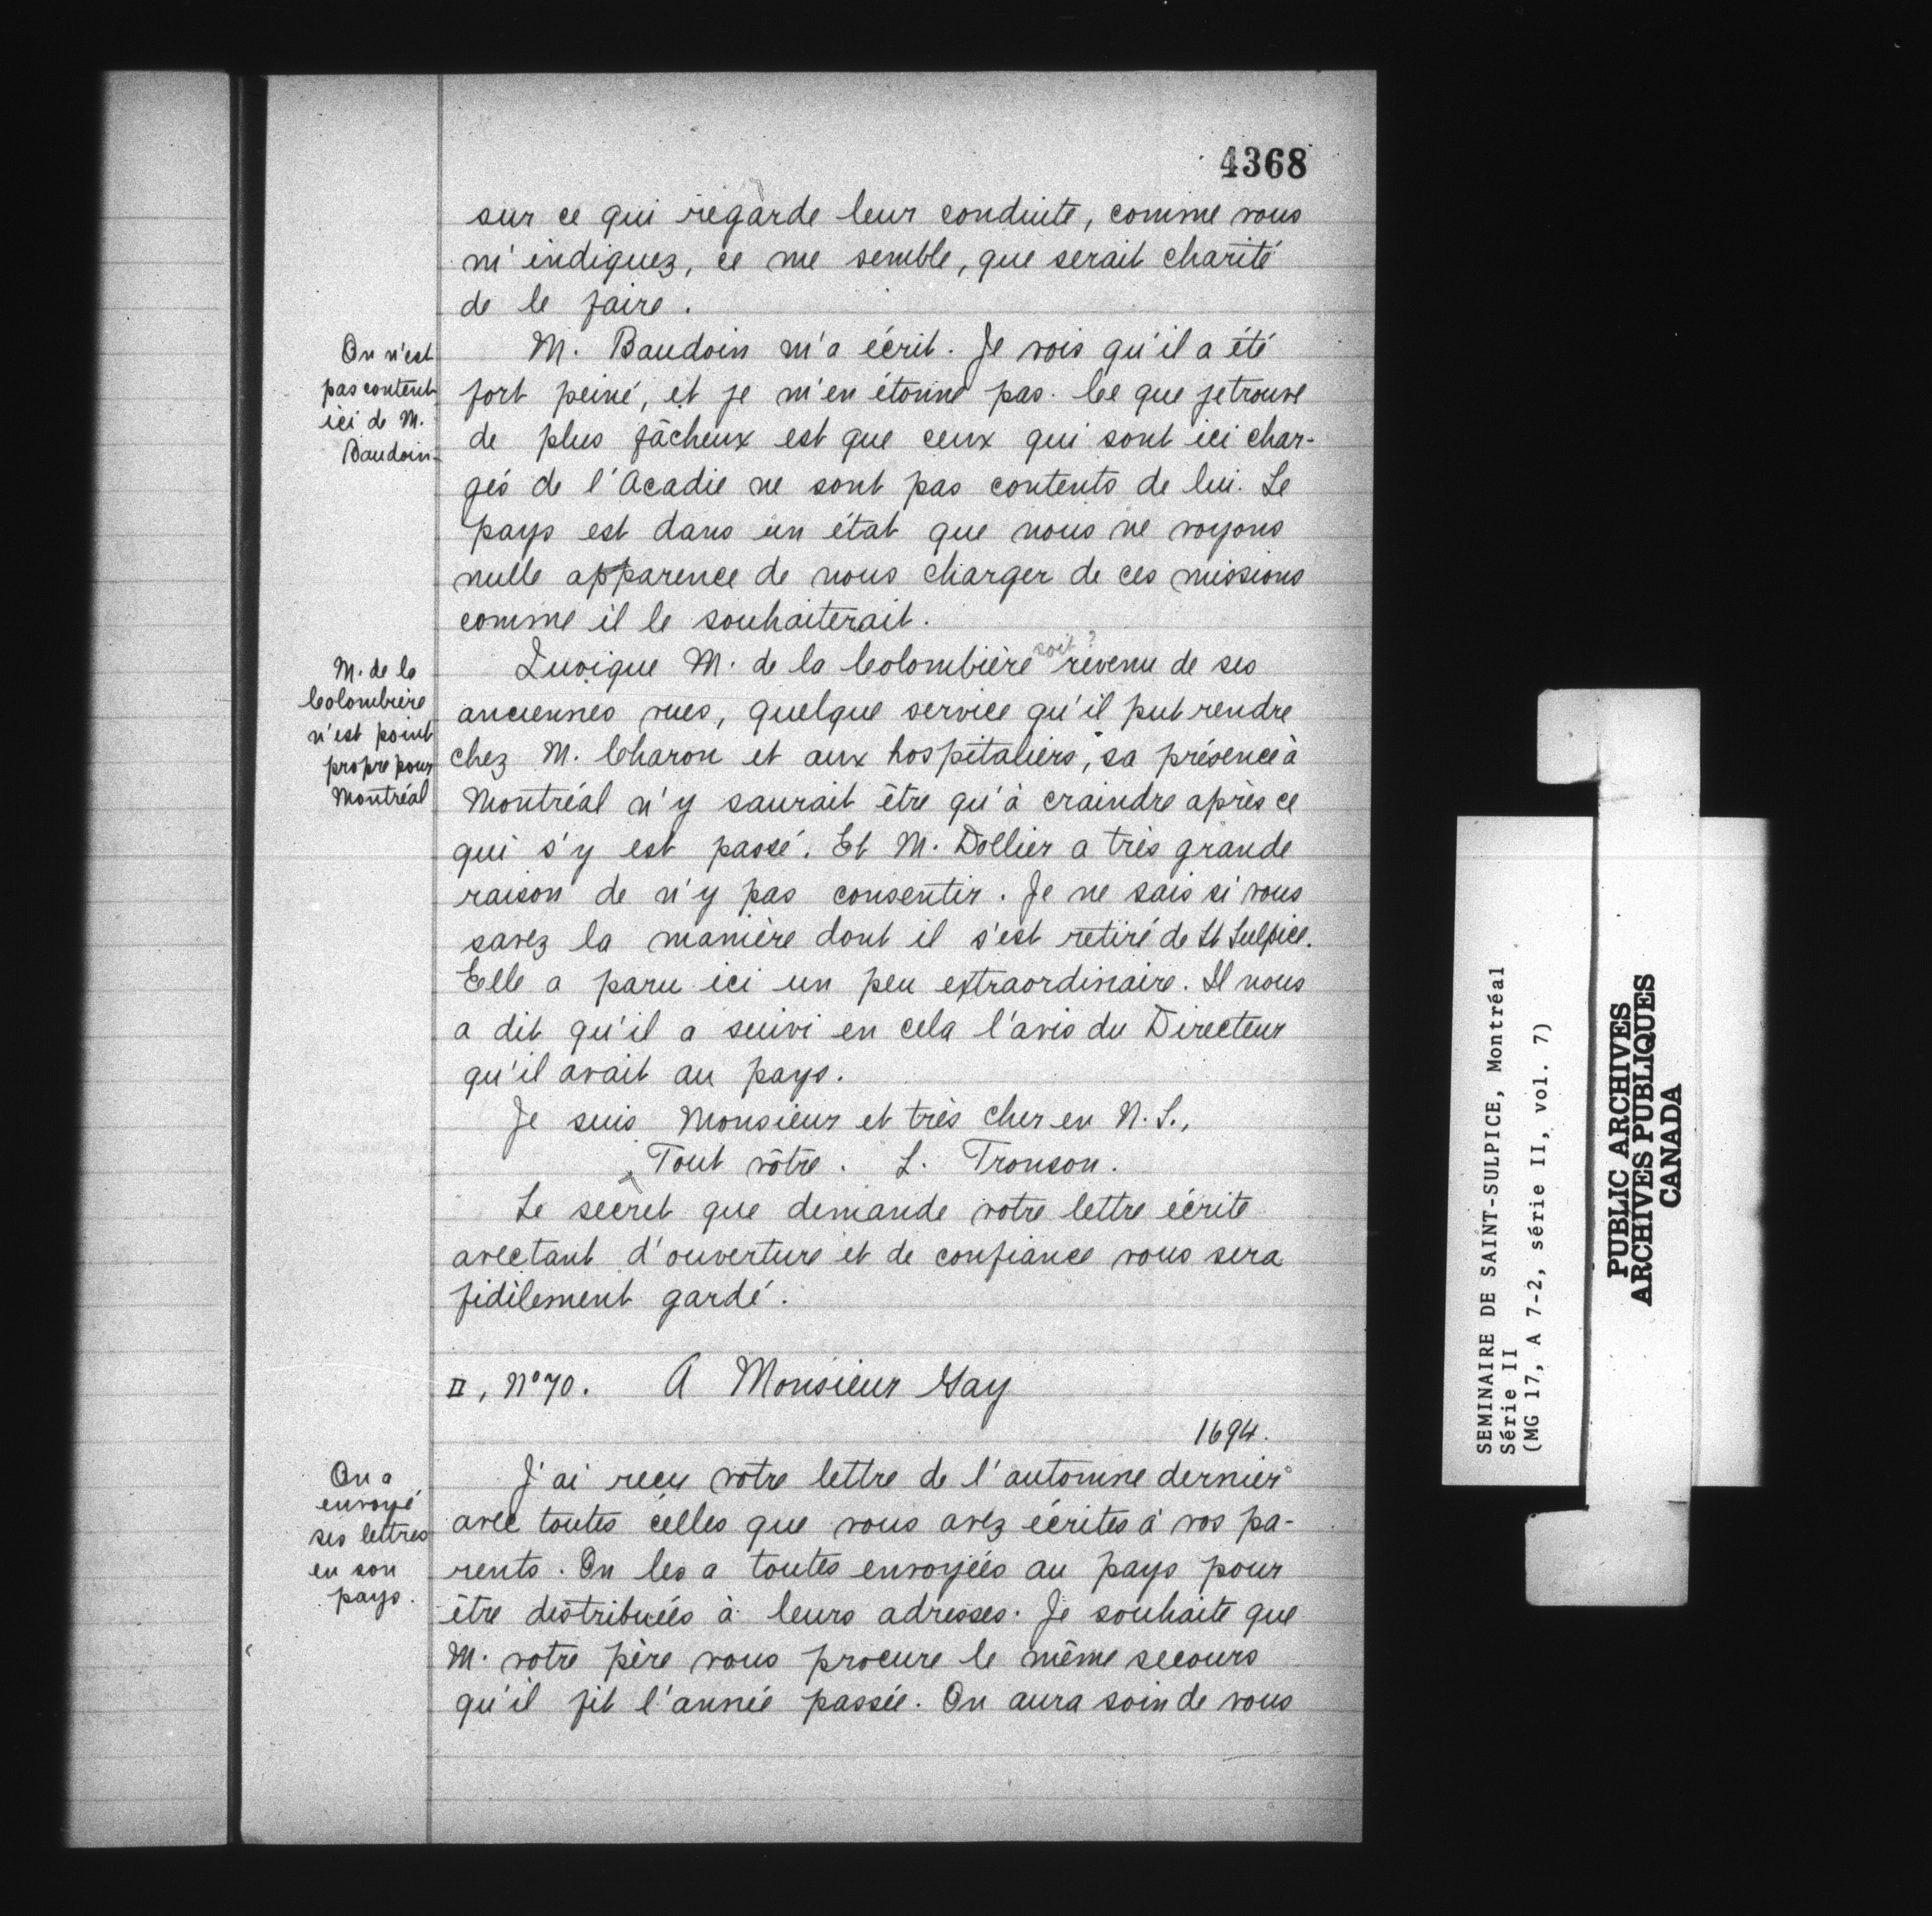 4368
sur ce qui regarde leur conduite, comme vous
m'indiquez, ce me semble, que serait charité
de le faire.
On n'est
pas content
ici de M.
Baudoin.
M. Baudoin m'a écrit. Je vois qu'il a été
fort peiné, et je m'en étonne pas. Ce que je trouve
de plus fâcheux est que ceux qui sont ici char-
gés de l'Acadie ne sont pas contents de lui. Le
pays est dans un état que nous ne voyons
nulle apparence de nous charger de ces missions
comme il le souhaiterait.
M. de la
Colombière
n'est point
propre pour
Montréal
Quoique M. de la Colombière soit? revenu de ses
anciennes vues, quelque service qu'il put rendre
chez M. Charon et aux hospitaliers, sa présence à
Montréal n'y saurait être qu'à craindre après ce
qui s'y est passé. Et M. Dollier a très grande
raison de n'y pas consentir. Je ne sais si vous
savez la manière dont il s'est retiré de St Sulpice.
Elle a paru ici un peu extraordinaire. Il nous
a dit qu'il a suivi en cela l'avis du Directeur
qu'il avait au pays.
Je suis Monsieur et très cher en N. S.,
Tout vôtre. L. Tronson.
Le secret que demande votre lettre écrite
avec tant d'ouverture et de confiance vous sera
fidèlement gardé.
II, No 70. A Monsieur Gay
1694.
On a
envoyé
ses lettres
en son
pays.
J'ai reçu votre lettre de l'automne dernier
avec toutes celles que vous avez écrites à vos pa-
rents. On les a toutes envoyées au pays pour
être distribuées à leurs adresses. Je souhaite que
M. votre père vous procure le même secours
qu'il fit l'année passée. On aura soin de vous
SEMINAIRE DE SAINT-SULPICE, Montréal
Série II
(MG 17, A 7-2, série II, vol. 7)
PUBLIC ARCHIVES
ARCHIVES PUBLIQUES
CANADA